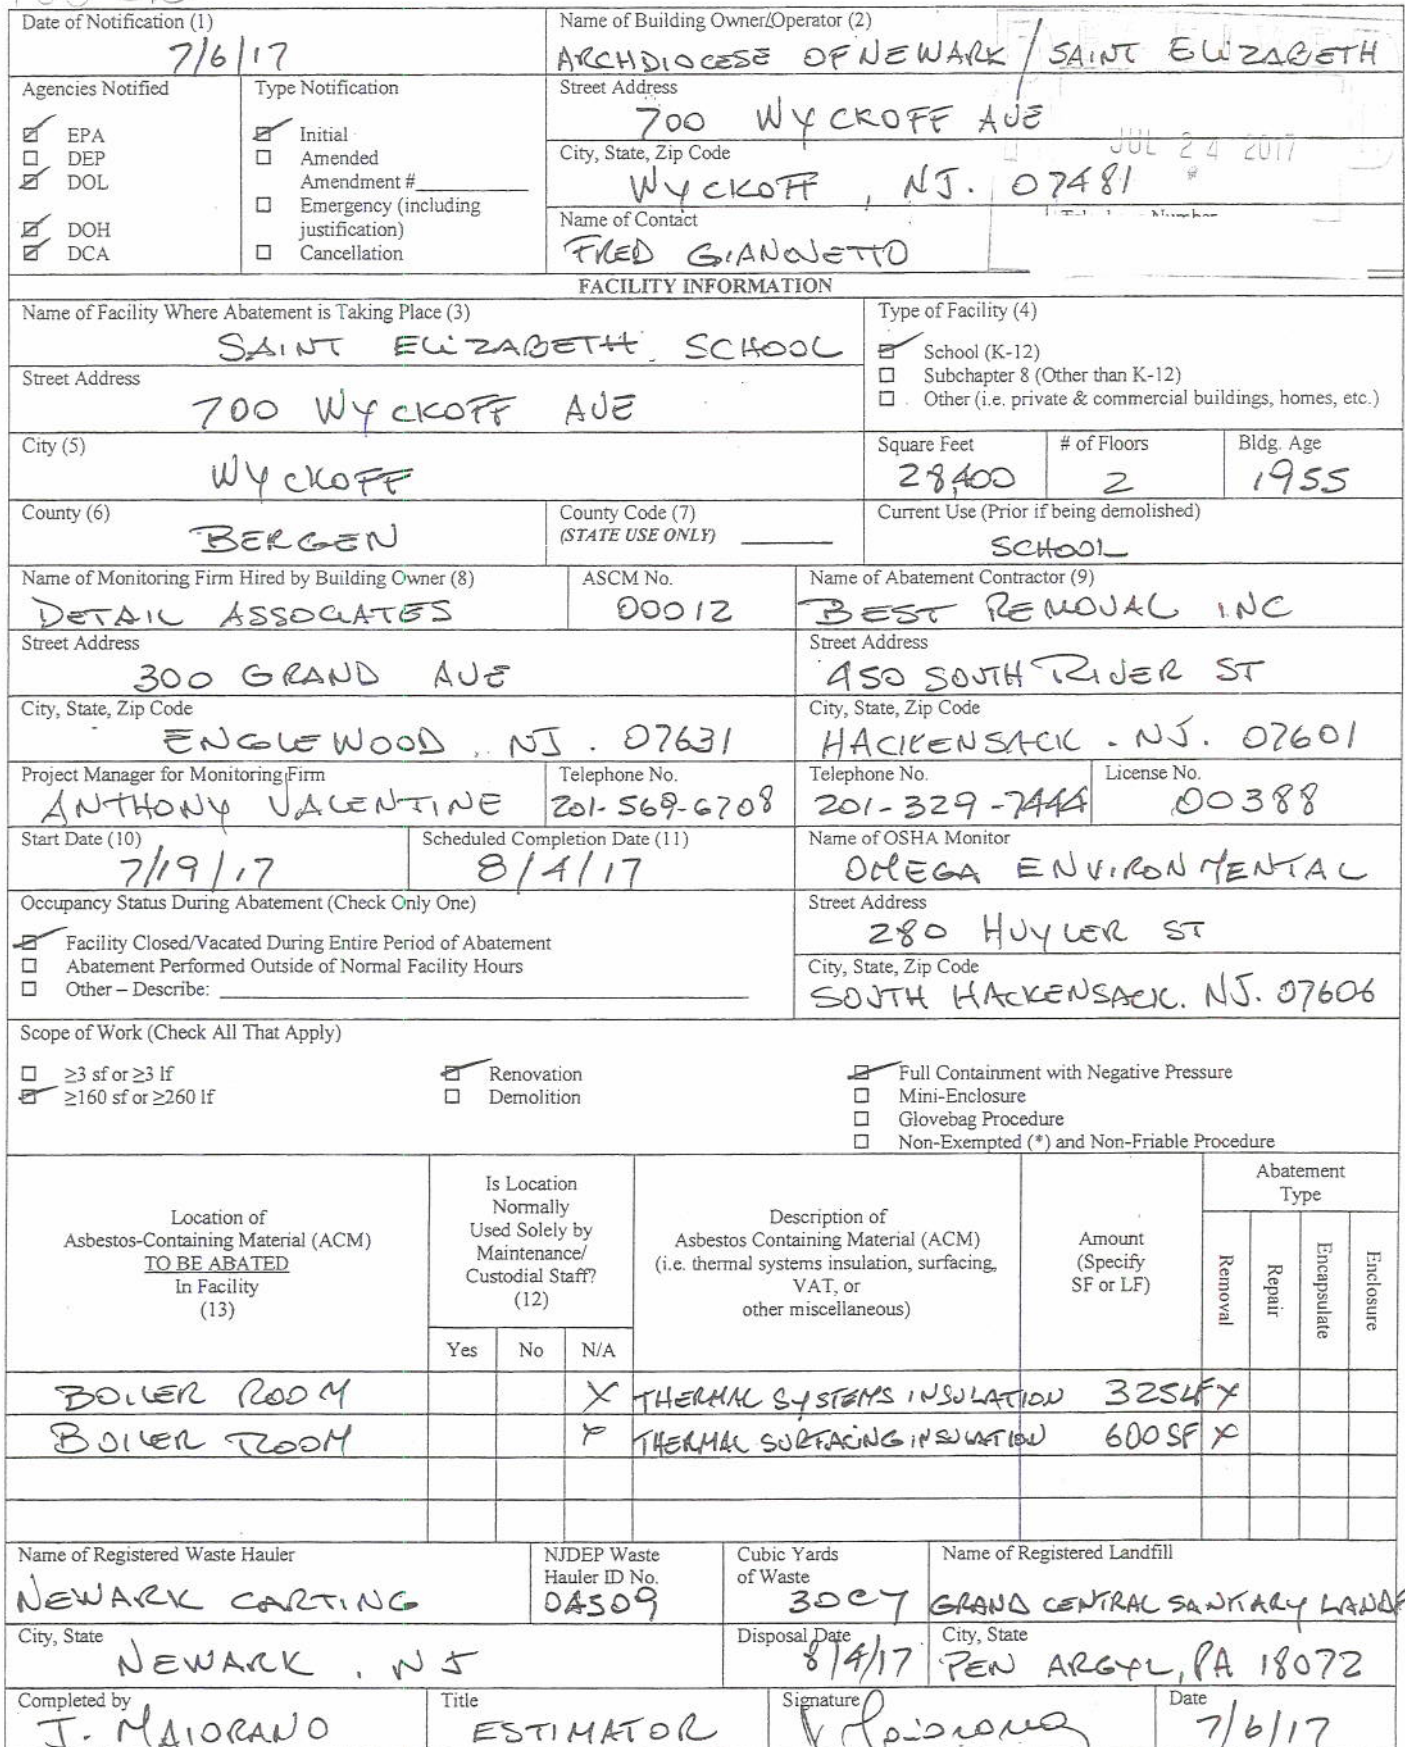 Date of Notification (1)
7/6/17
Name of Building Owner/Operator (2)
ARCHDIOCESE OF NEWARK / SAINT ELIZABETH
Agencies Notified
EPA
DEP
DOL
DOH
DCA
Type Notification
Initial
Amended
Amendment #
Emergency (including
justification)
Cancellation
Street Address
700 WYCKOFF AVE
City, State, Zip Code
WYCKOFF, NJ. 07481
JUL 24 2017
Name of Contact
FRED GIANNETTO
FACILITY INFORMATION
Name of Facility Where Abatement is Taking Place (3)
SAINT ELIZABETH SCHOOL
Type of Facility (4)
School (K-12)
Subchapter 8 (Other than K-12)
Other (i.e. private & commercial buildings, homes, etc.)
Street Address
700 WYCKOFF AVE
City (5)
WYCKOFF
Square Feet
28,400
# of Floors
2
Bldg. Age
1955
County (6)
BERGEN
County Code (7)
(STATE USE ONLY)
Current Use (Prior if being demolished)
SCHOOL
Name of Monitoring Firm Hired by Building Owner (8)
DETAIL ASSOCIATES
ASCM No.
00012
Name of Abatement Contractor (9)
BEST REMOVAL INC
Street Address
300 GRAND AVE
Street Address
450 SOUTH RIVER ST
City, State, Zip Code
ENGLEWOOD, NJ. 07631
City, State, Zip Code
HACKENSACK. NJ. 07601
Project Manager for Monitoring Firm
ANTHONY VALENTINE
Telephone No.
201-569-6708
Telephone No.
201-329-7444
License No.
00388
Start Date (10)
7/19/17
Scheduled Completion Date (11)
8/4/17
Name of OSHA Monitor
OMEGA ENVIRONMENTAL
Occupancy Status During Abatement (Check Only One)
Facility Closed/Vacated During Entire Period of Abatement
Abatement Performed Outside of Normal Facility Hours
Other – Describe:
Street Address
280 HUYLER ST
City, State, Zip Code
SOUTH HACKENSACK. NJ. 07606
Scope of Work (Check All That Apply)
≥3 sf or ≥3 lf
≥160 sf or ≥260 lf
Renovation
Demolition
Full Containment with Negative Pressure
Mini-Enclosure
Glovebag Procedure
Non-Exempted (*) and Non-Friable Procedure
Location of
Asbestos-Containing Material (ACM)
TO BE ABATED
In Facility
(13)
Is Location
Normally
Used Solely by
Maintenance/
Custodial Staff?
(12)
Yes No N/A
Description of
Asbestos Containing Material (ACM)
(i.e. thermal systems insulation, surfacing,
VAT, or
other miscellaneous)
Amount
(Specify
SF or LF)
Abatement
Type
Removal
Repair
Encapsulate
Enclosure
BOILER ROOM X THERMAL SYSTEMS INSULATION 325 LF X
BOILER ROOM X THERMAL SURFACING INSULATION 600 SF X
Name of Registered Waste Hauler
NEWARK CARTING
NJDEP Waste
Hauler ID No.
04509
Cubic Yards
of Waste
30CY
Name of Registered Landfill
GRAND CENTRAL SANITARY LANDF
City, State
NEWARK, NJ
Disposal Date
8/4/17
City, State
PEN ARGYL, PA 18072
Completed by
J. MAIORANO
Title
ESTIMATOR
Signature
Date
7/6/17